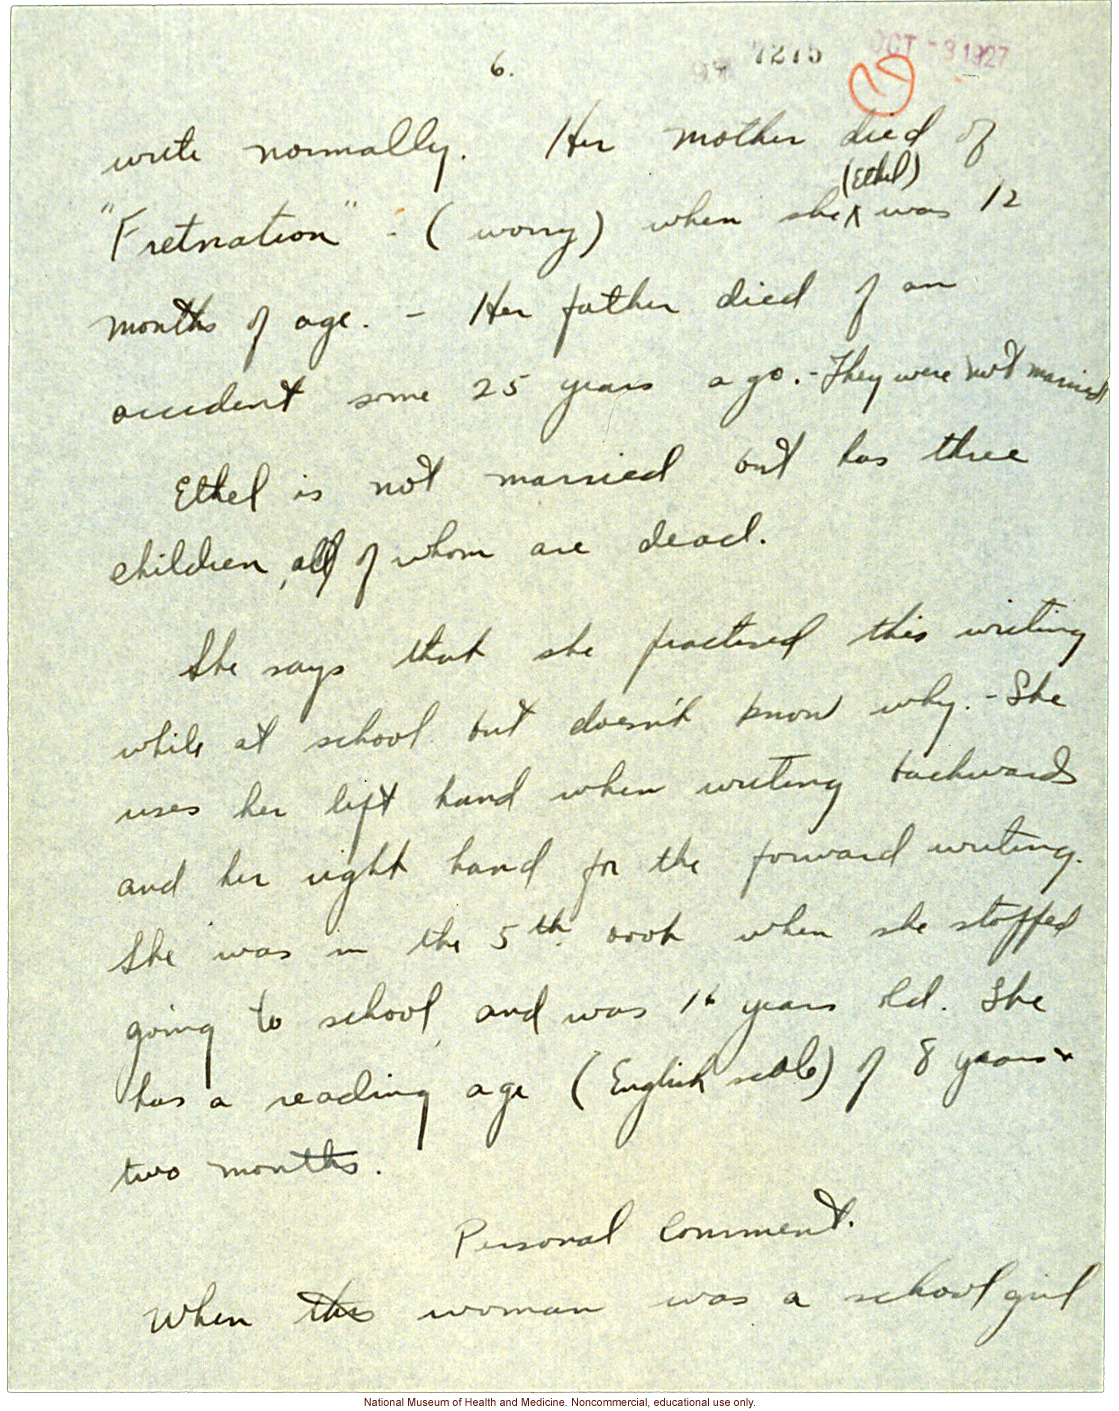 6.
7275
OCT - 3 1927
write normally. Her mother died of
(Ethel)
"Fretnation" - (worry) when she was 12
months of age. - Her father died of an
accident some 25 years ago. - They were not married
Ethel is not married but has three
children, all of whom are dead.
She says that she practised this writing
while at school but doesn't know why. - She
uses her left hand when writing backwards
and her right hand for the forward writing.
She was in the 5th book when she stopped
going to school, and was 16 years old. She
has a reading age (English scale) of 8 years
two months.
Personal Comment.
When this woman was a school girl
National Museum of Health and Medicine. Noncommercial, educational use only.